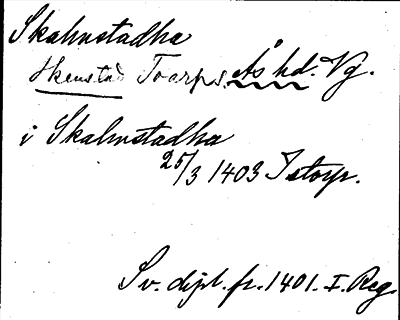 Skahnstadha
Skenstad Toarps Ås hd. Vg.
i Skahnstadha
25/3 1403 I storp.
Sv. dipl. fr. 1401. I. Reg.